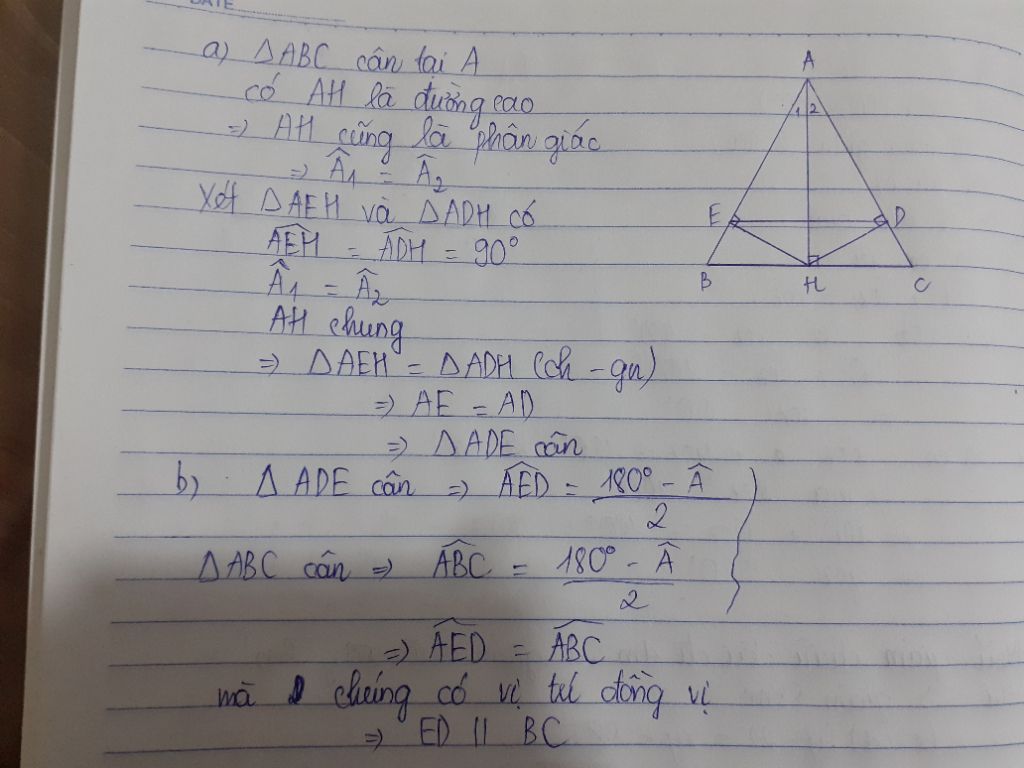 DATE
a) △ABC cân tại A
có AH là đường cao
=> AH cũng là phân giác
=> Â1 = Â2
Xét △AEH và △ADH có
AEH^ = ADH^ = 90°
Â1 = Â2
AH chung
=> △AEH = △ADH (ch - gn)
=> AE = AD
=> △ADE cân
b) △ADE cân => AED^ = (180° - Â)/2
△ABC cân => ABC^ = (180° - Â)/2
=> AED^ = ABC^
mà chúng có vị trí đồng vị
=> ED // BC
A
1 2
E D
B H C